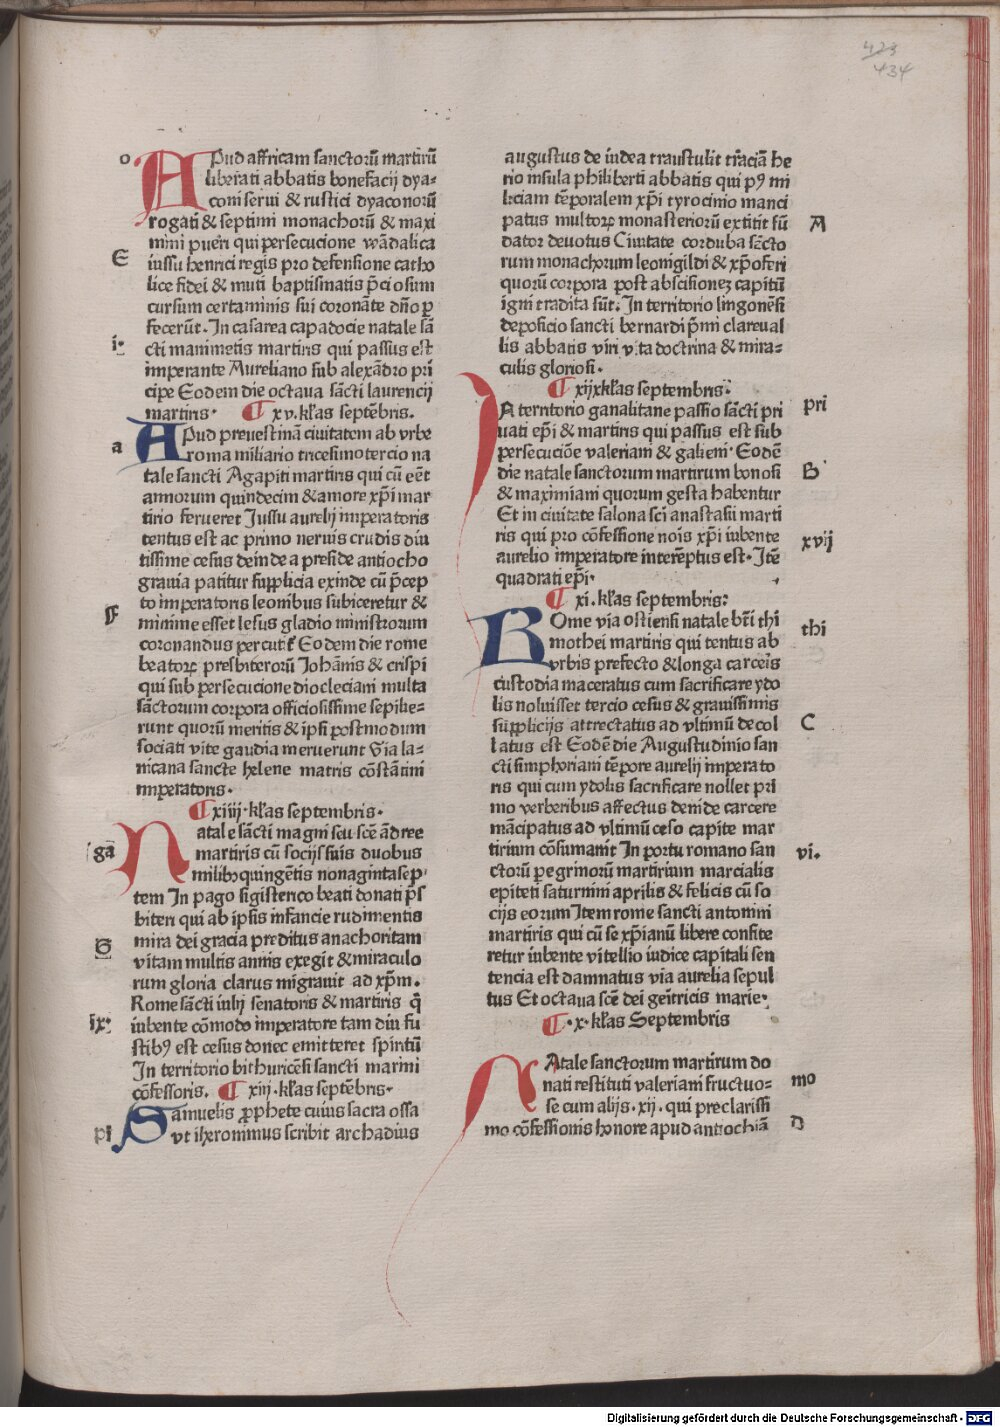 423
434
o
APud affricam sanctorū martirū
liberati abbatis bonefacij dya⸗
coni serui & rustici dyaconorū
rogati & septimi monachorū & maxi
mini pueri qui persecucione wādalica
iussu henrici regis pro defensione catho
E
lice fidei & muti baptismatis p̄ciosum
cursum certaminis sui coronāte dn̄o ꝑ
fecerūt. In casarea capadocie natale sā
cti mammetis martiris qui passus est
i·
imperante Aureliano sub alexādro pri
cipe Eodem die octaua sācti laurencij
martiris· ¶ xv. kl̄as septēbris.
a
APud preuestinā ciuitatem ab vrbe
roma miliario tricesimotercio na
tale sancti Agapiti martiris qui cū eēt
annorum quindecim & amore xp̄i mar
tirio ferueret Jussu aurelij imperatoris
tentus est ac primo neruis crudis diu
tissime cesus deinde a preside antiocho
grauia patitur supplicia exinde cū p̄cep
to imperatoris leonibus subiceretur &
F
minime esset lesus gladio ministrorum
coronandus percutit᷑ Eodem die rome
beatoꝝ presbiterorū Iohānis & crispi
qui sub persecucione diocleciani multa
sāctorum corpora officiosissime sepilie⸗
runt quorū meritis & ipsi postmodum
sociati vite gaudia meruerunt Via la⸗
nicana sancte helene matris cōstātini
imperatoris·
¶ xiiij· kl̄as septembris·
ga
Natale sācti magni seu scē ādree
martiris cū socijs suis duobus
milibꝫ quingētis nonaginta sep⸗
tem In pago sigistenco beati donati p̄s
biteri qui ab ipsis infancie rudimentis
G
mira dei gracia preditus anachoritam
vitam multis annis exegit & miraculo
rum gloria clarus migrauit ad xp̄m.
Rome sācti iulij senatoris & martiris q̄
ix·
iubente cōmodo imperatore tam diu fu
stibꝰ est cesus donec emitteret spiritū
In territorio bithuricēsi sancti marini
cōfessoris. ¶ xiij. kl̄as septēbris·
Samuelis ꝓphete cuius sacra ossa
pi
vt iheronimus scribit archadius
augustus de iudea transtulit tr̄aciā he
rio insula philiberti abbatis qui pꝰ mi
liciam tēporalem xp̄i tyrocinio manci
patus multoꝝ monasteriorū extitit fū
A
dator deuotus Ciuitate corduba sācto
rum monachorum leonigildi & xp̄oferi
quorū corpora post abscisionez capitū
igni tradita sūt. In territorio lingonēsi
deposicio sancti bernardi p̄mi clareual
lis abbatis viri vita doctrina & mira⸗
culis gloriosi·
¶ xij kl̄as septembris·
pri
IN territorio ganalitane passio sācti pri
uati ep̄i & martiris qui passus est sub
persecucione valeriani & galieni· Eodē
die natale sanctorum martirum bonosi
B
& maximiani quorum gesta habentur
Et in ciuitate salona sc̄i anastasii marti
ris qui pro cōfessione nois xp̄i iubente
xvij
aurelio imperatore interēptus est· Itē
quadrati ep̄i·
¶ xi. kl̄as septembris:
thi
ROme via ostiensi natale bt̄i thi
mothei martiris qui tentus ab
vrbis prefecto & longa carceris
custodia maceratus cum sacrificare ydo
lis noluisset tercio cesus & grauissimis
supplicijs attrectatus ad vltimū decol
C
latus est Eodē die Augustudinio san
cti simphoriani tēpore aurelij imperato
ris qui cum ydolis sacrificare nollet pri
mo verberibus affectus deinde carcere
mācipatus ad vltimū ceso capite mar
tirium cōsumauit In portu romano san
vi.
ctorū peregrinorū martirium marcialis
epiteti saturnini aprilis & felicis cū so
cijs eorum Item rome sancti antonini
martiris qui cū se xp̄ianū libere confite
retur iubente vitellio iudice capitali sen
tencia est damnatus via aurelia sepul
tus Et octaua scē dei genītricis marie·
¶ ·x· kl̄as Septembris
NAtale sanctorum martirum do
mo
nati restituti valeriani fructuo⸗
se cum alijs· xij. qui preclarissi
D
mo cōfessionis honore apud antiochiā
Digitalisierung gefördert durch die Deutsche Forschungsgemeinschaft - DFG